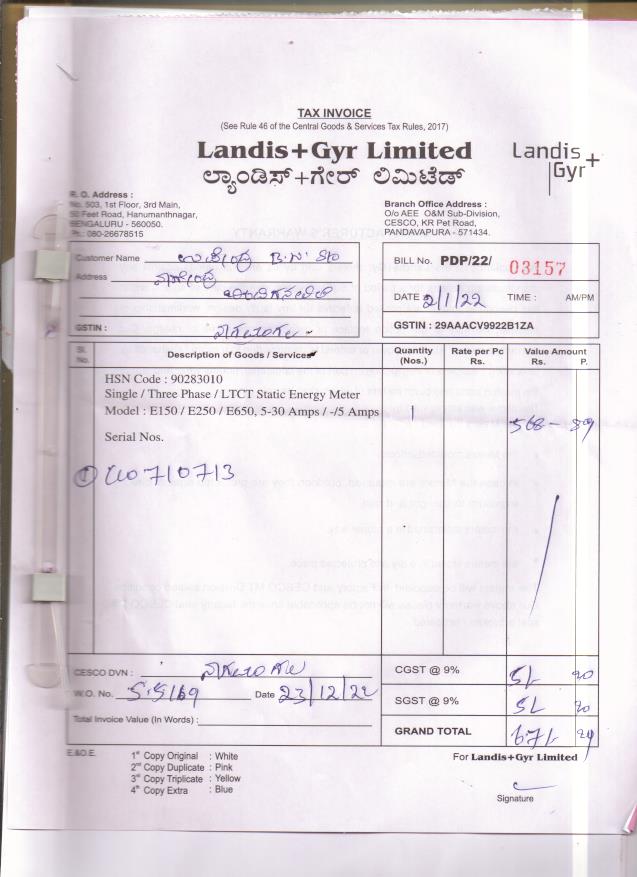 TAX INVOICE
(See Rule 46 of the Central Goods & Services Tax Rules, 2017)
Landis+Gyr Limited
ಲ್ಯಾಂಡಿಸ್+ಗೇರ್ ಲಿಮಿಟೆಡ್
Landis+
Gyr
R. O. Address :
No. 503, 1st Floor, 3rd Main,
Feet Road, Hanumanthnagar,
BENGALURU - 560050.
Ph.: 080-26678515
Branch Office Address :
O/o AEE O&M Sub-Division,
CESCO, KR Pet Road,
PANDAVAPURA - 571434.
Customer Name B.N. S/o
Address
GSTIN :
BILL No. PDP/22/ 03157
DATE 2/1/22 TIME : AM/PM
GSTIN : 29AAACV9922B1ZA
Sl. No. Description of Goods / Services Quantity (Nos.) Rate per Pc Rs. Value Amount Rs. P.
HSN Code : 90283010
Single / Three Phase / LTCT Static Energy Meter
Model : E150 / E250 / E650, 5-30 Amps / -/5 Amps 1 568 - 89
Serial Nos.
CESCO DVN :
W.O. No. Date 23/12/22
Total Invoice Value (In Words) :
CGST @ 9%
SGST @ 9%
GRAND TOTAL
E.&O.E.
1st Copy Original : White
2nd Copy Duplicate : Pink
3rd Copy Triplicate : Yellow
4th Copy Extra : Blue
For Landis+Gyr Limited
Signature